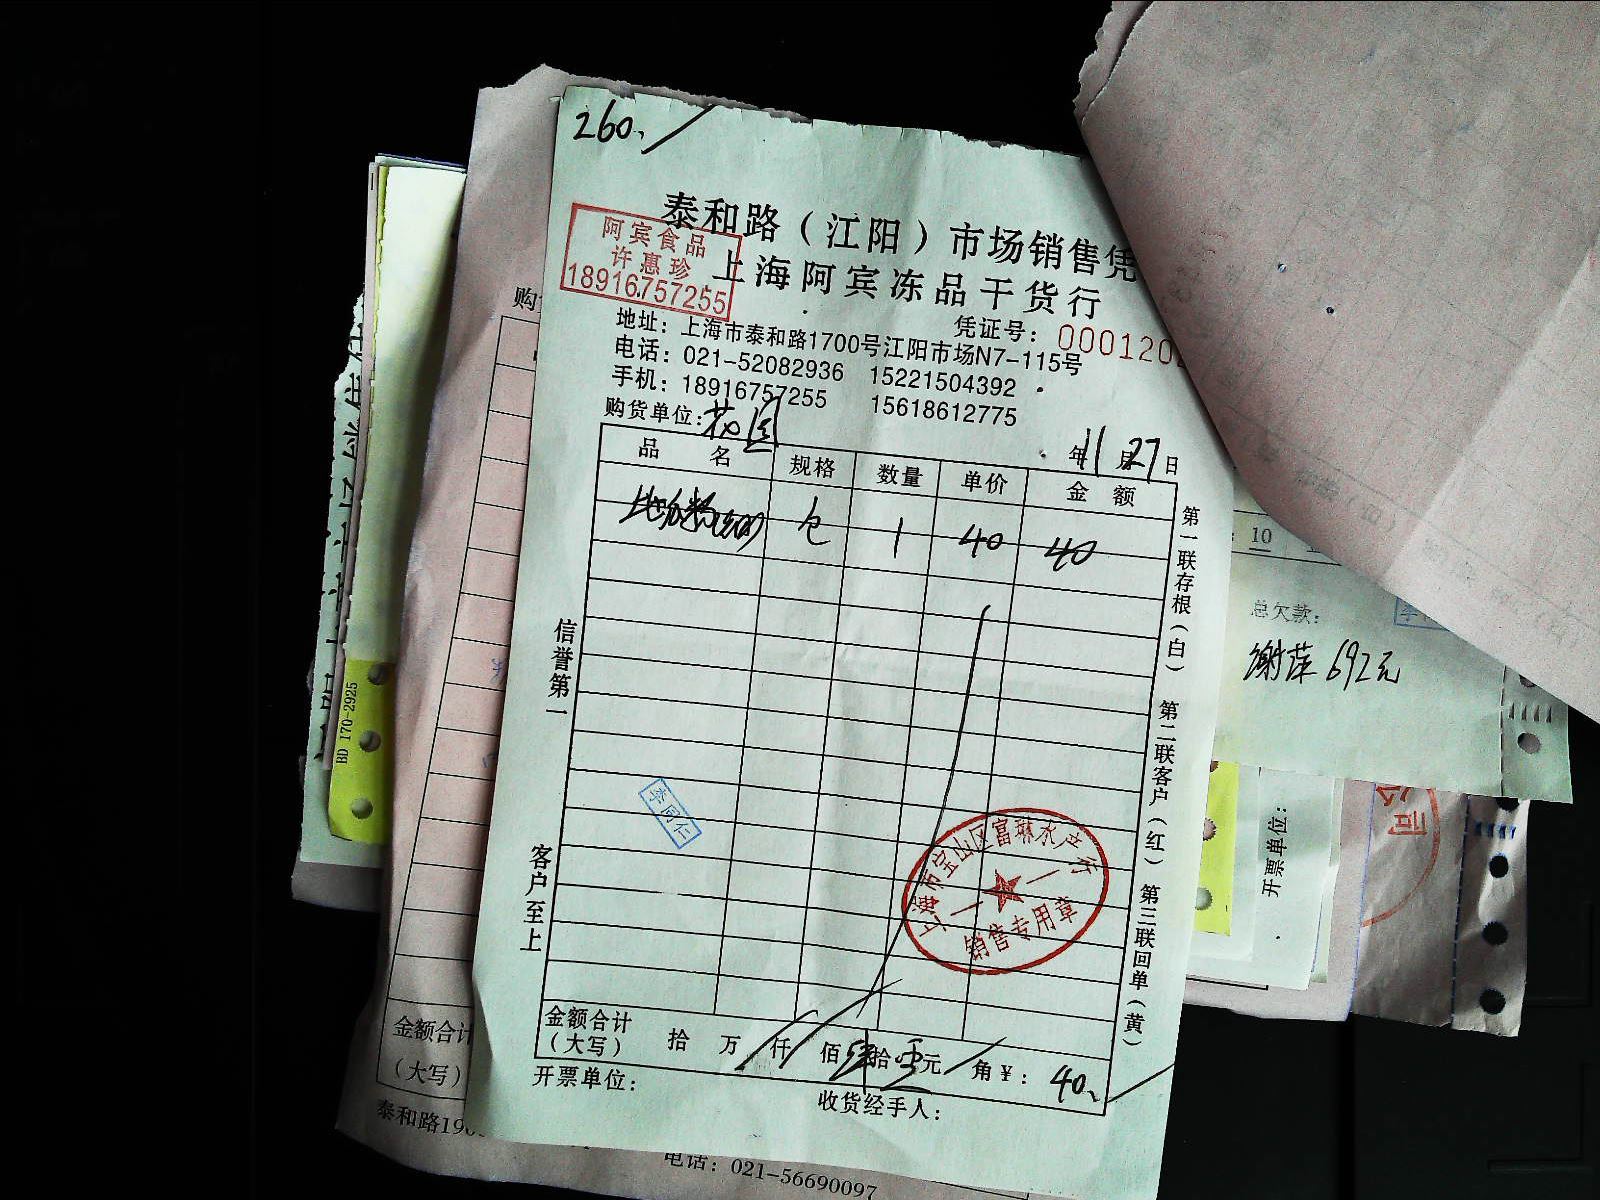 260.
泰和路（江阳）市场销售凭
上海阿宾冻品干货行
阿宾食品
许惠珍
18916757255
凭证号：0001202
地址：上海市泰和路1700号江阳市场N7-115号
电话：021-52082936 15221504392
手机：18916757255 15618612775
购货单位：花园
年11月27日
品名 规格 数量 单价 金额
包 1 40 40
信誉第一
客户至上
第一联存根（白） 第二联客户（红） 第三联回单（黄）
李同仁
上海市宝山区富琳水产行
销售专用章
金额合计
（大写） 拾 万 仟 佰 肆拾零元 角¥：40.
开票单位：
收货经手人：
购
金额合计
（大写）
泰和路190
电话：021-56690097
BD 170-2925
10
总欠款：
谢萍 692元
开票单位：
公司